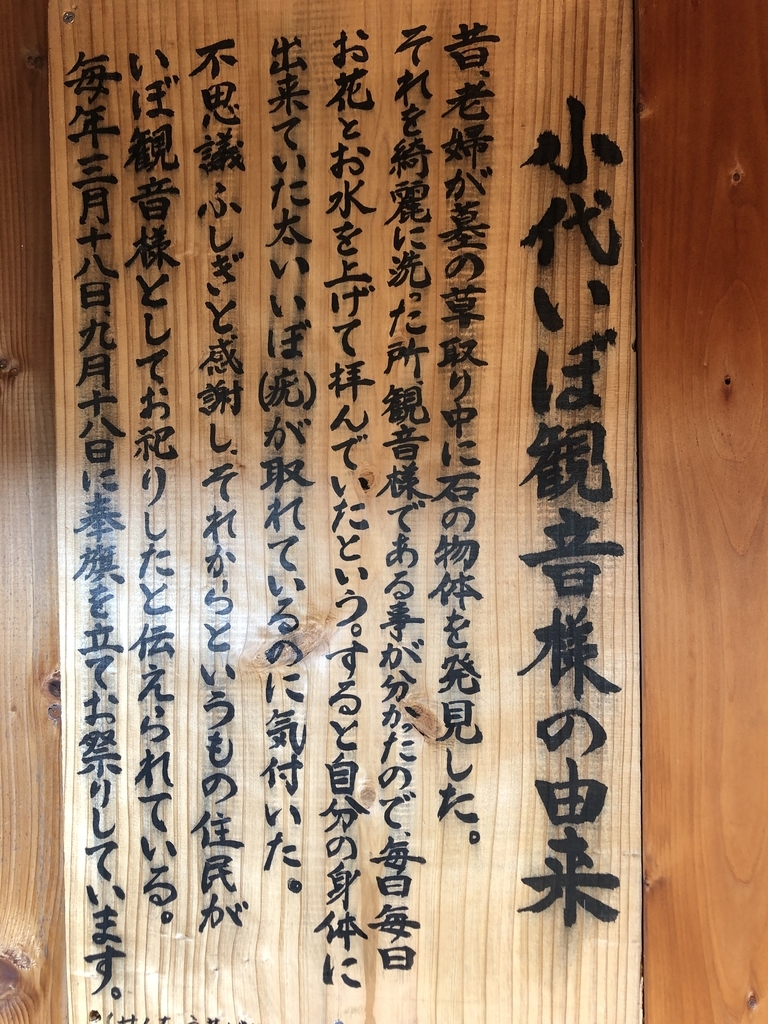 小代いぼ観音様の由来
昔、老婦が墓の草取り中に石の物体を発見した。
それを綺麗に洗った所、観音様である事が分かったので、毎日毎日
お花とお水を上げて拝んでいたという。すると自分の身体に
出来ていた太いいぼ(疣)が取れているのに気付いた。
不思議ふしぎと、感謝し、それからというもの住民が
いぼ観音様としてお祀りしたと伝えられている。
毎年三月十八日、九月十八日に奉旗を立てお祭りしています。